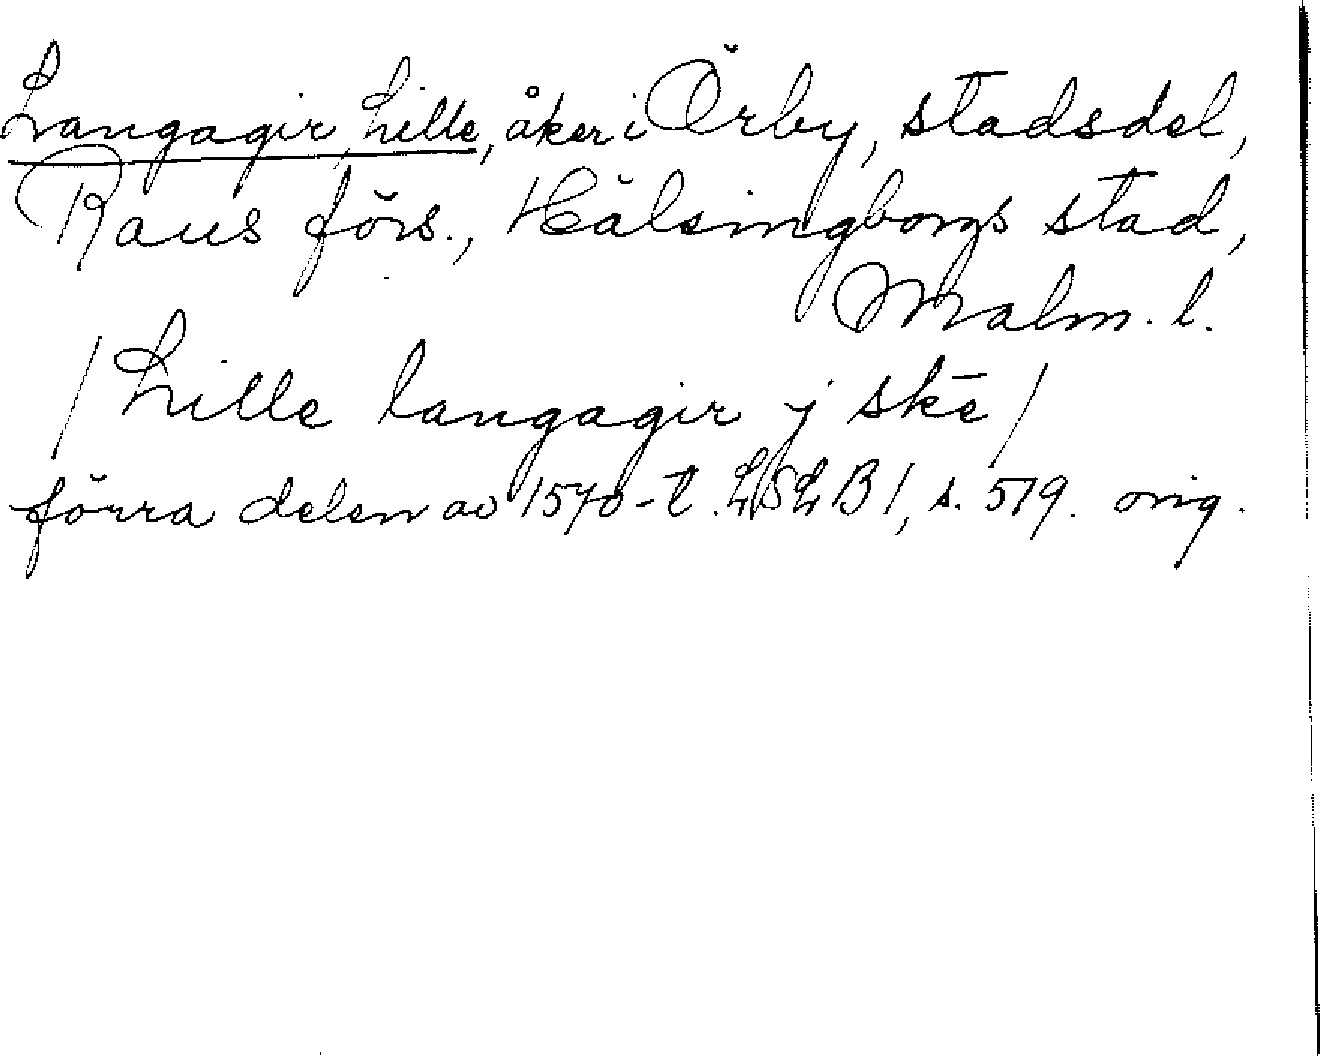 Langagir, Lille, åker i Örby, stadsdel,
Raus förs., Hälsingborgs stad,
Malm. l.
/ Lille langagir j skē /
förra delen av 1570-t. LSLB 1, s. 579. orig.